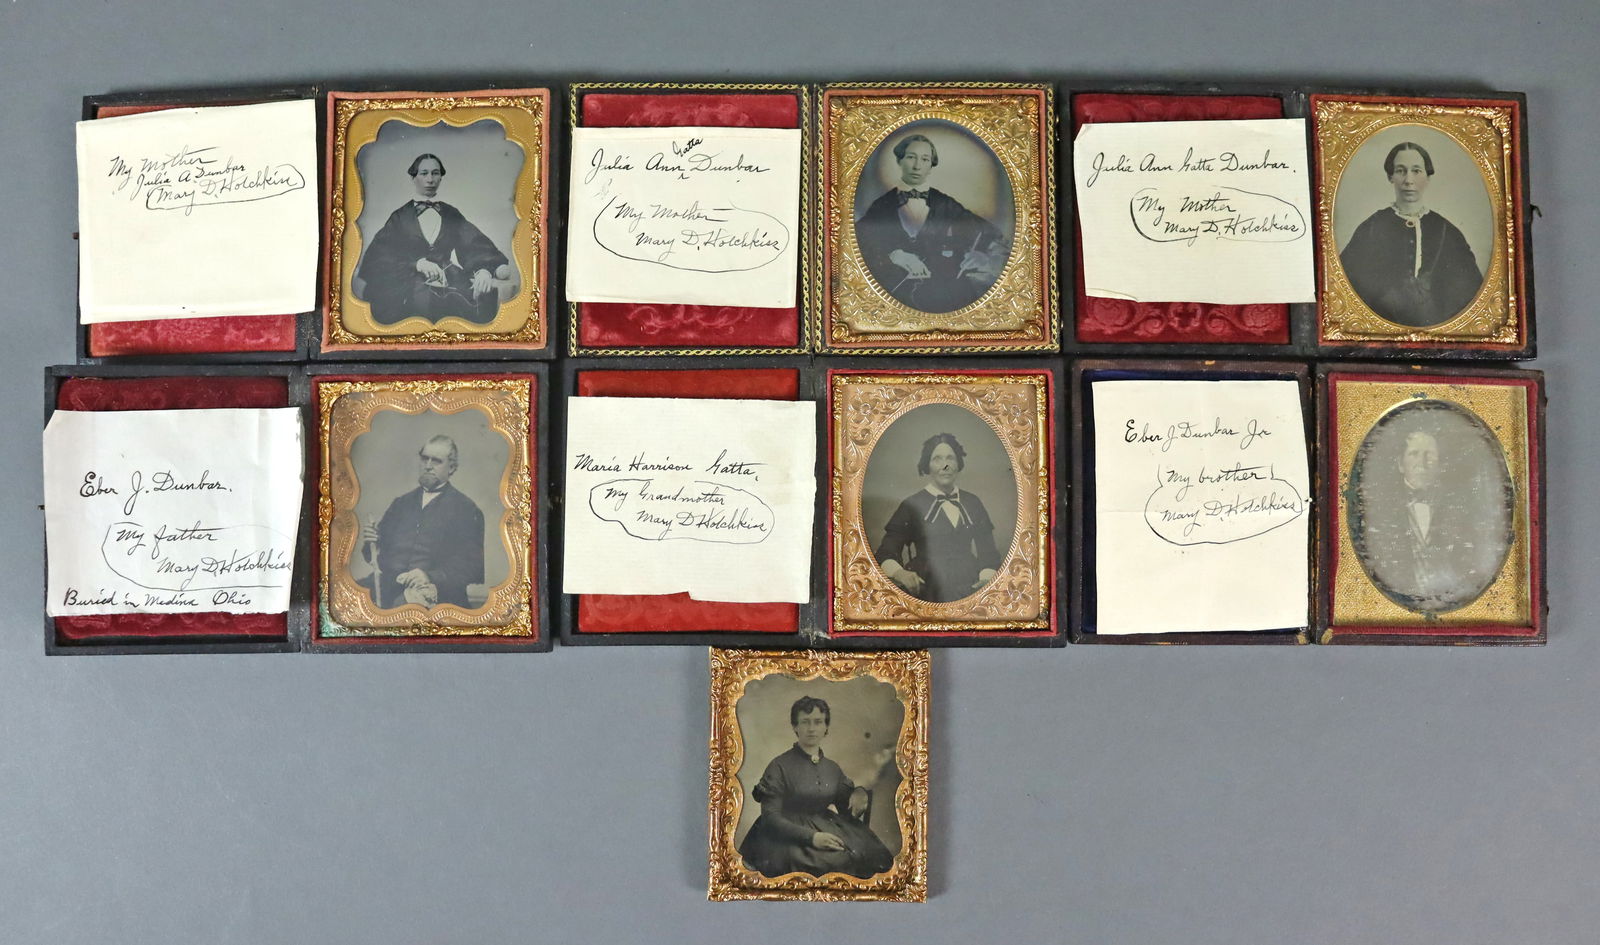 My Mother
Julia A Dunbar
Mary D. Hotchkiss
Julia Ann Gatta Dunbar
My Mother
Mary D. Hotchkiss
Julia Ann Gatta Dunbar.
My Mother
Mary D. Hotchkiss
Eber J. Dunbar.
My father
Mary D. Hotchkiss
Buried in Medina Ohio
Maria Harrison Gatta,
My Grandmother
Mary D Hotchkiss
Eber J Dunbar Jr
My brother
Mary D. Hotchkiss